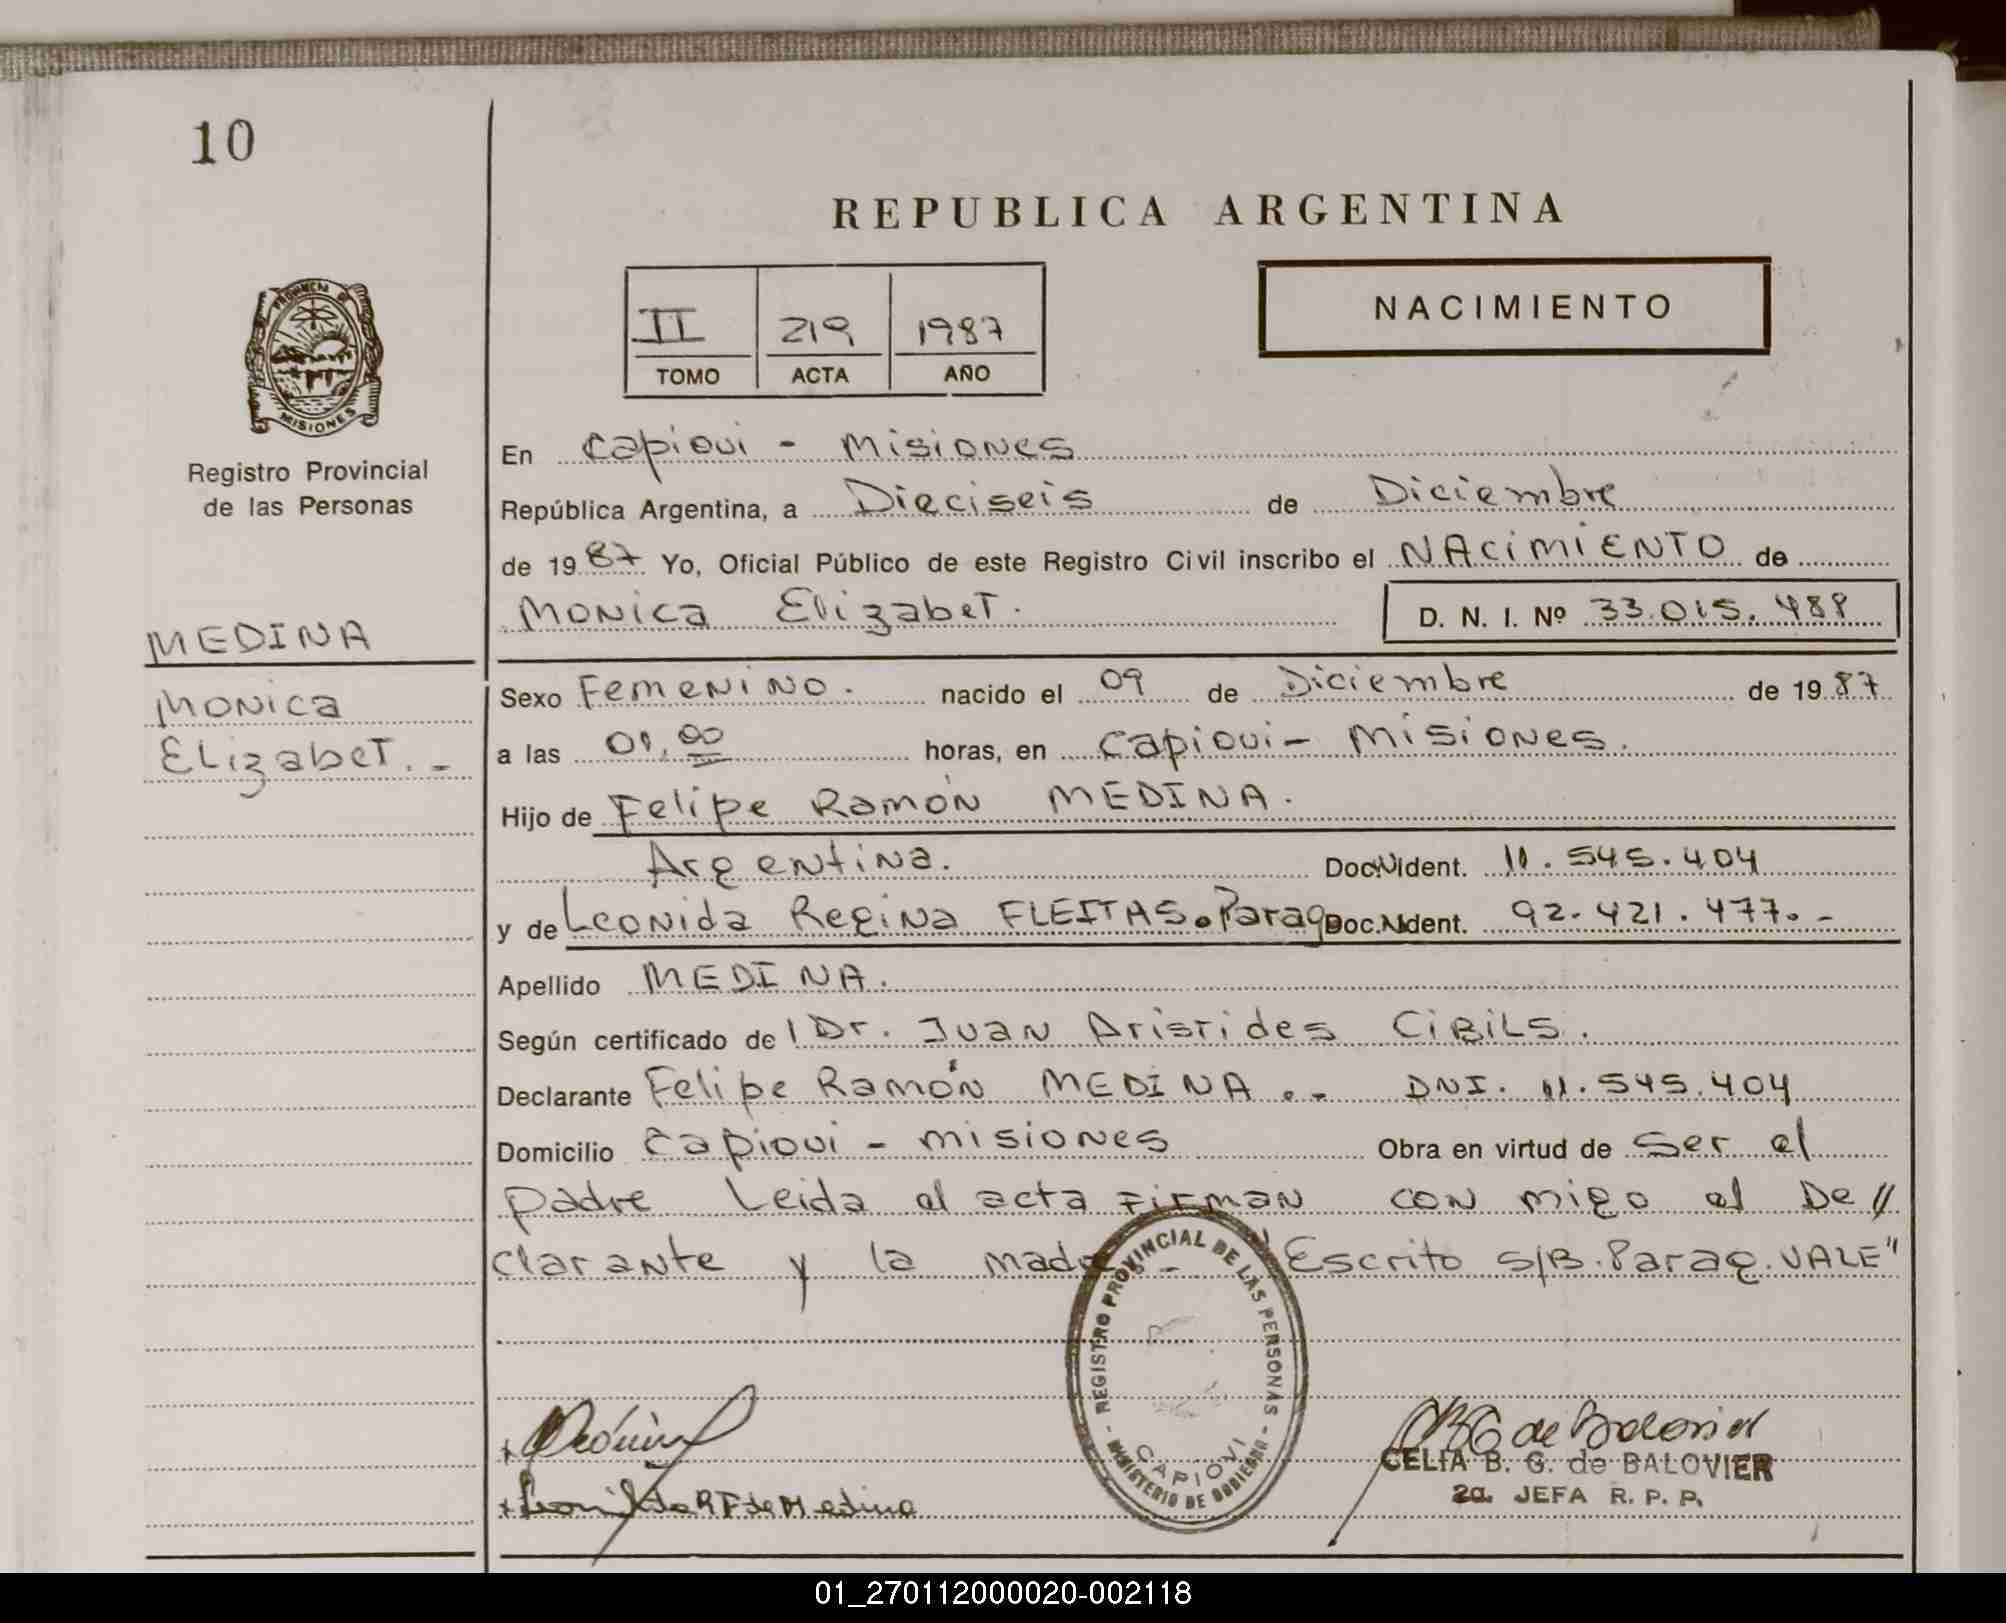 10
REPUBLICA ARGENTINA
NACIMIENTO
II 219 1987
TOMO ACTA AÑO
PROVINCIA DE
MISIONES
Registro Provincial
de las Personas
MEDINA
Monica
Elizabet.-
En Capiovi - Misiones
República Argentina, a Dieciseis de Diciembre
de 1987 Yo, Oficial Público de este Registro Civil inscribo el NAcimiENTO de
Monica Elizabet. D. N. I. Nº 33.015.489
Sexo Femenino. nacido el 09 de Diciembre de 1987
a las horas, en Capiovi- Misiones.
Hijo de Felipe Ramón MEDINA.
Argentina. Doc. Ident. 11.545.404
y de Leonida Regina FLEITAS. Parag Doc. Ident. 92.421.477.-
Apellido MEDINA.
Según certificado del Dr. Juan Aristides CiBiLS.
Declarante Felipe Ramón MEDINA.- DNI. 11.545.404
Domicilio Capiovi - misiones Obra en virtud de Ser el
padre Leida el acta Firman con migo el De//
clarante y la madre.- "Escrito S/B. Parag. VALE"
- REGISTRO PROVINCIAL DE LAS PERSONAS -
CAPIOVI
MINISTERIO DE GOBIERNO
CELIA B. G. de BALOVIER
2a. JEFA R. P. P.
01_270112000020-002118